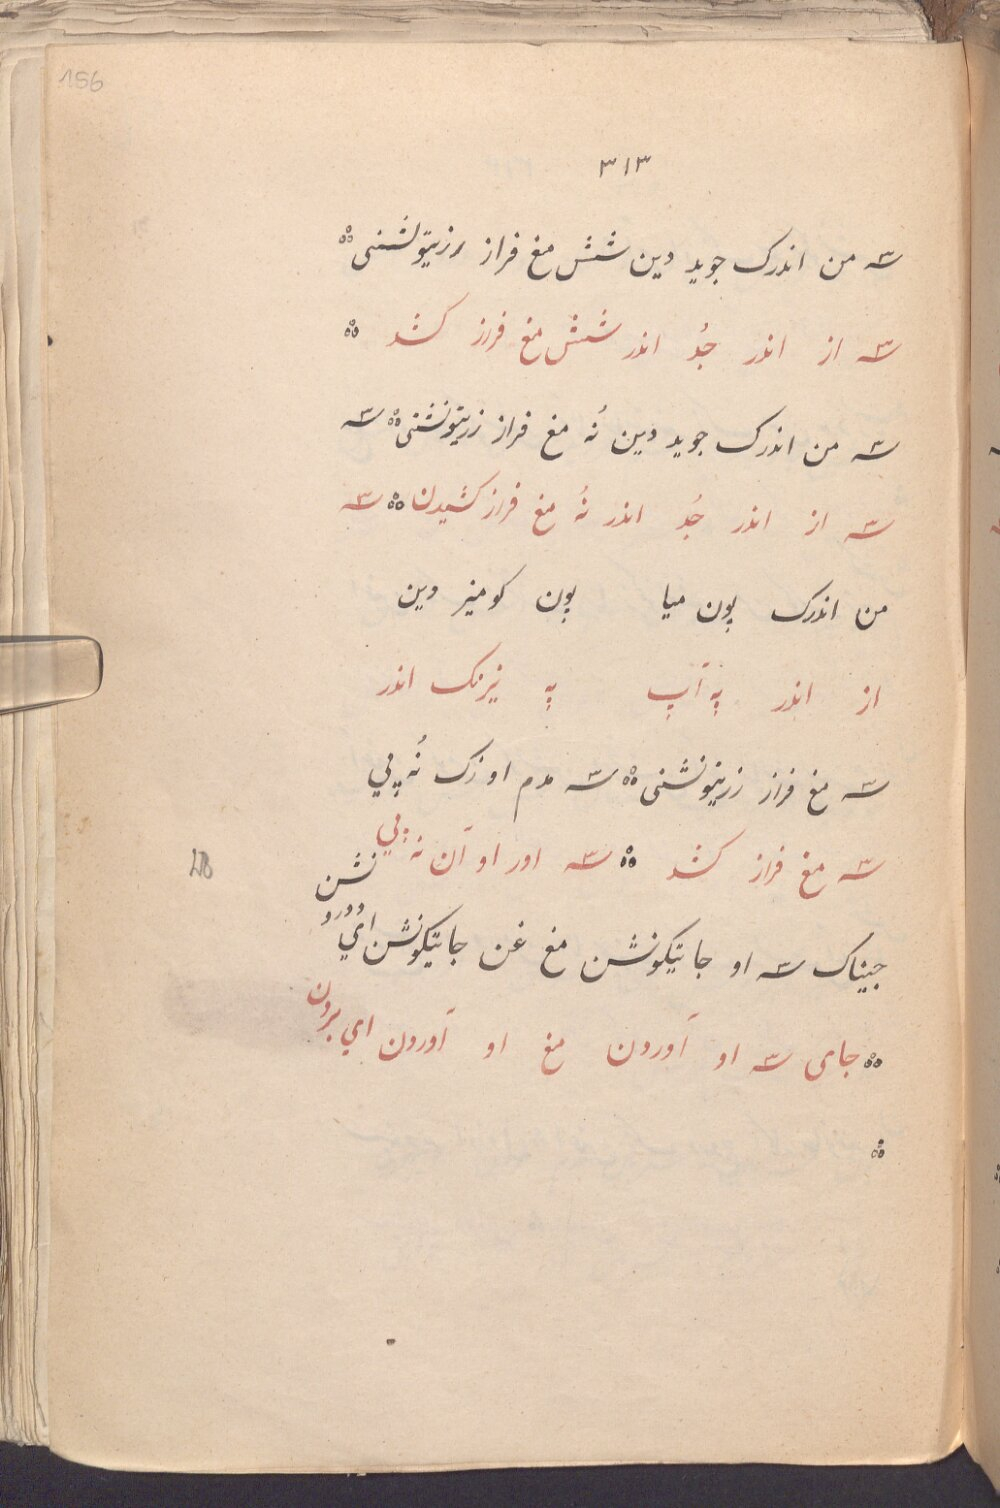 156
۳۱۳
سه من اندرک جوید دین شش مغ فراز رزیتونشنی
سه از اندر جُد اندر شش مغ فراز کشد
سه من اندرک جوید دین نُه مغ فراز زریتونشنی سه
سه از اندر جُد اندر نُه مغ فراز کشیدن سه
من اندرک پون میا پون کومیز دین
از اندر په آپ په نیرنک اندر
سه مغ فراز زریتونشنی سه مدم او زک نُه پي
سه مغ فراز کشد سه اور او آن نه پي
جیناک سه او جاتیکونشن مغ غن جاتیکونشن اي
جای سه او آوردن مغ او آوردن اي بردن